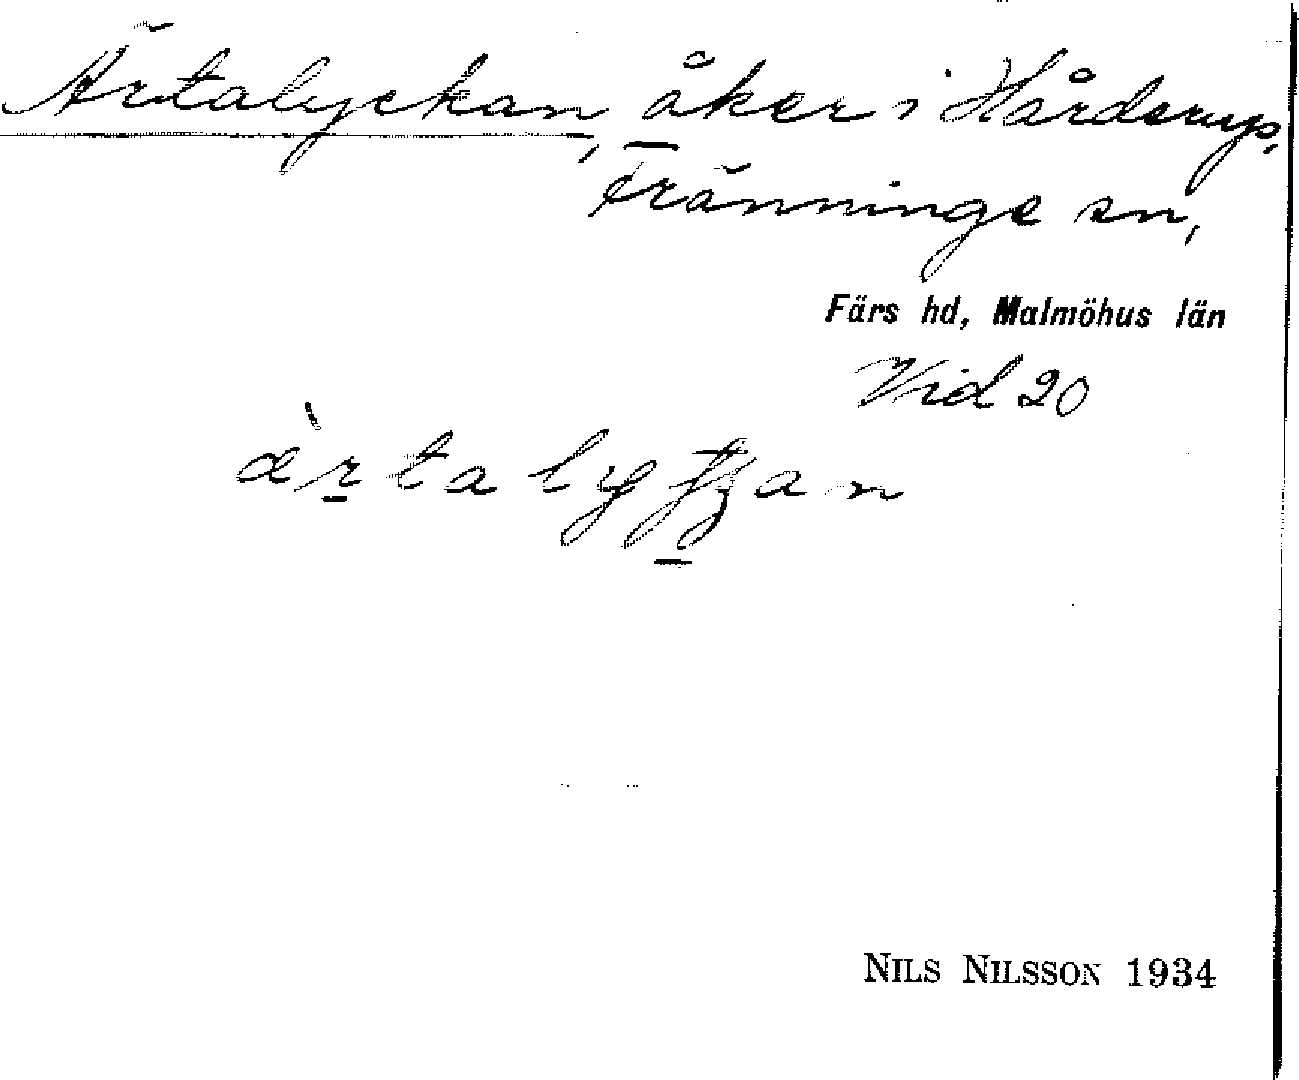 Ärtalyckan, åker i Hårderup,
Tränninge sn,
Färs hd, Malmöhus län
Vid 20
NILS NILSSON 1934